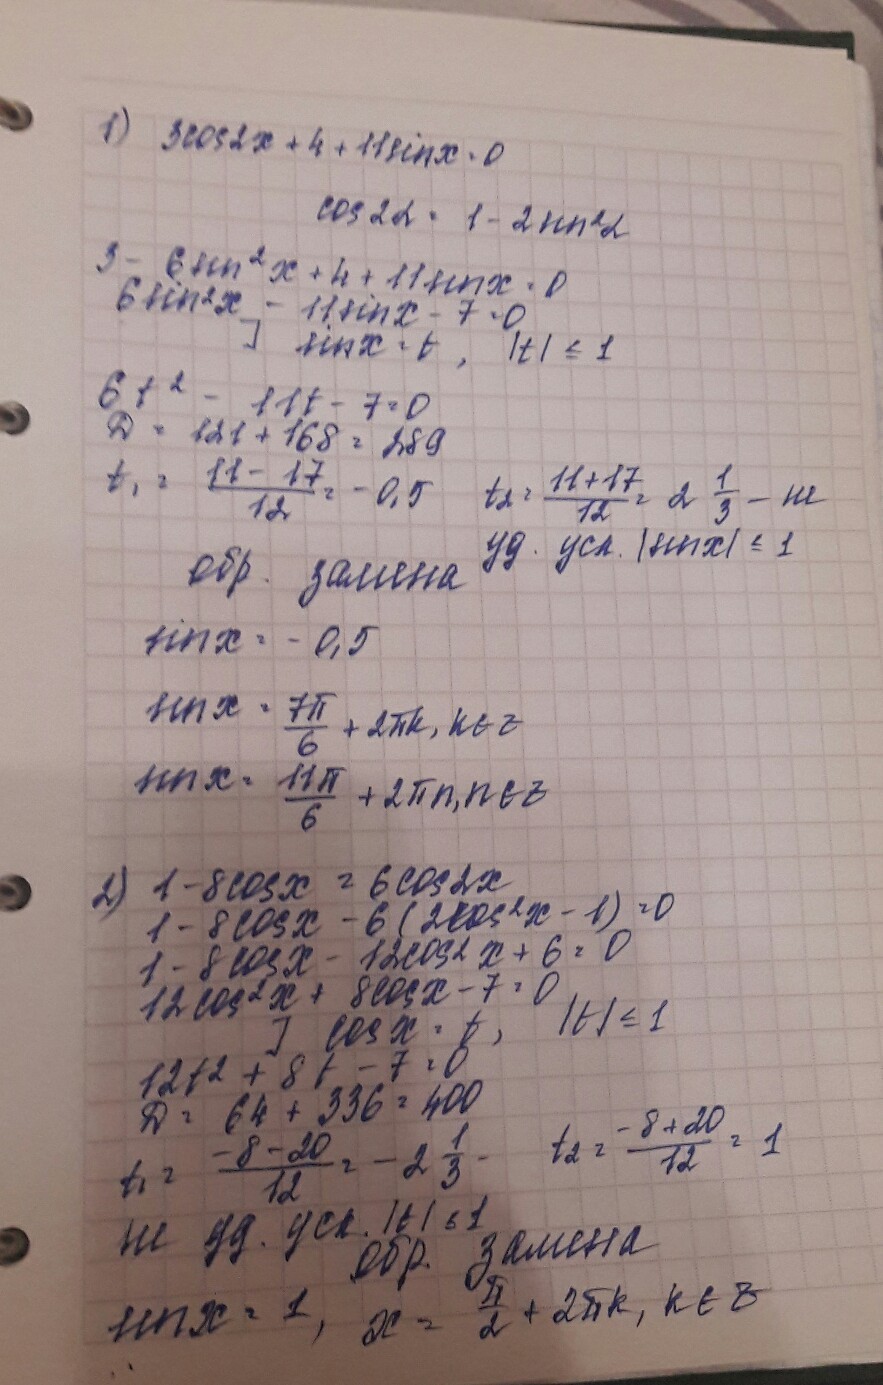 1) 3cos2x + 4 + 11sinx = 0
cos2α = 1 - 2sin²α
3 - 6sin²x + 4 + 11sinx = 0
6sin²x - 11sinx - 7 = 0
] sinx = t, |t| ≤ 1
6t² - 11t - 7 = 0
D = 121 + 168 = 289
t₁ = (11 - 17)/12 = -0,5 t₂ = (11+17)/12 = 2 1/3 - не
уд. усл. |sinx| ≤ 1
обр. замена
sinx = -0,5
sinx = 7π/6 + 2πk, k ∈ Z
sinx = 11π/6 + 2πn, n ∈ Z
2) 1 - 8cosx = 6cos2x
1 - 8cosx - 6(2cos²x - 1) = 0
1 - 8cosx - 12cos²x + 6 = 0
12cos²x + 8cosx - 7 = 0
] cosx = t, |t| ≤ 1
12t² + 8t - 7 = 0
D = 64 + 336 = 400
t₁ = (-8 - 20)/12 = -2 1/3 - t₂ = (-8 + 20)/12 = 1
не уд. усл. |t| ≤ 1
обр. замена
sinx = 1, x = π/2 + 2πk, k ∈ Z